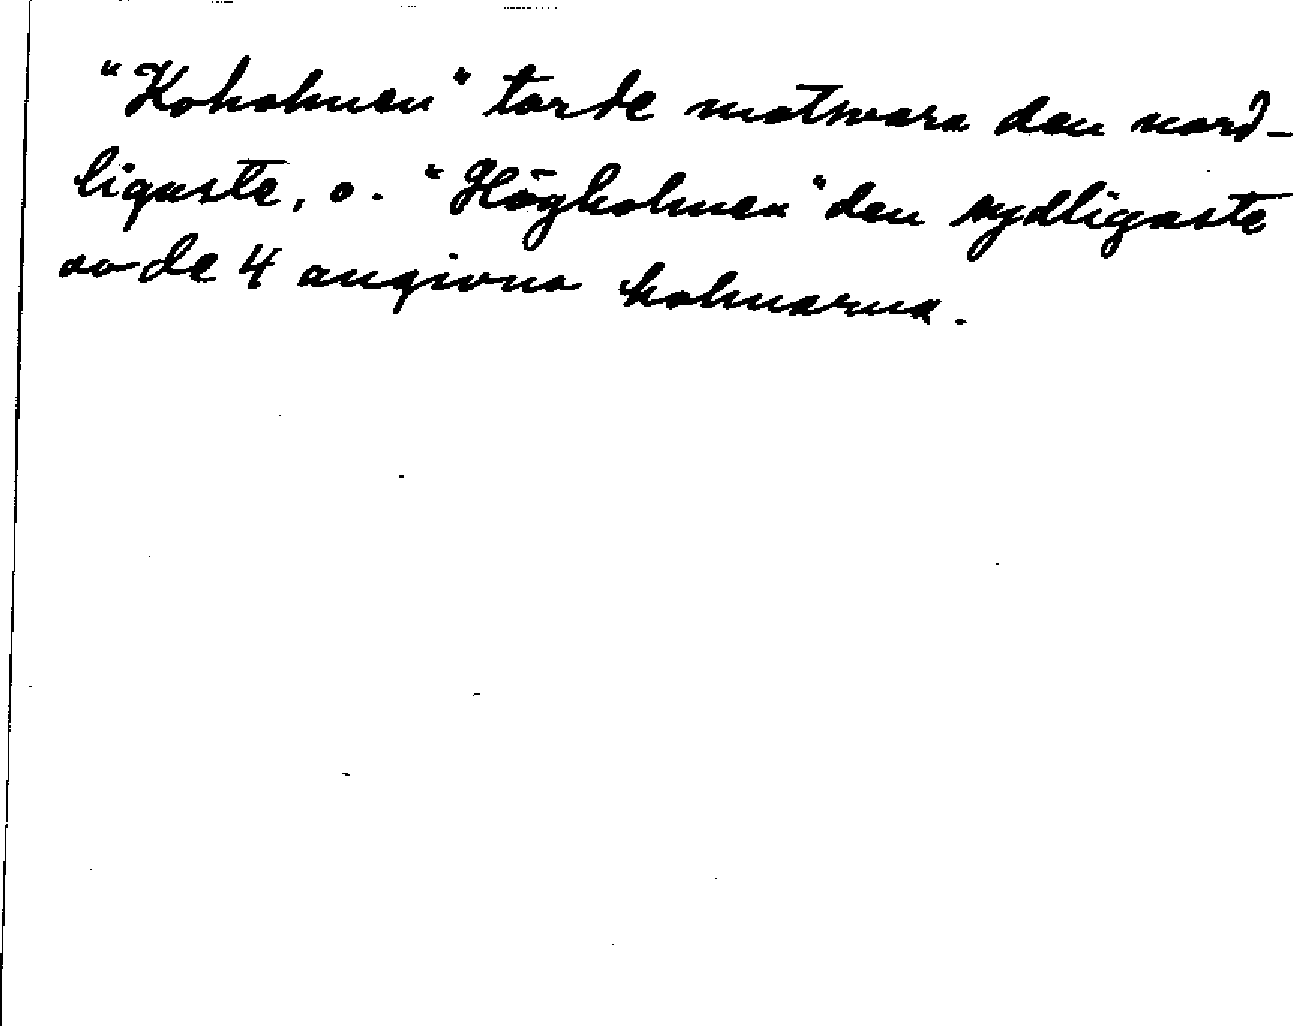 "Koholmen" torde motsvara den nord-
ligaste, o. "Högholmen" den sydligaste
av de 4 angivna holmarna.